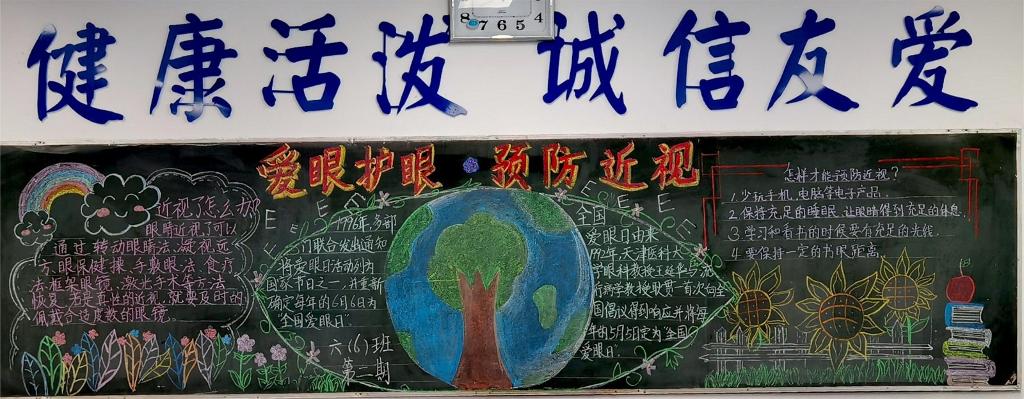 8 7 6 5 4
健康活泼 诚信友爱
爱眼护眼·预防近视
近视了怎么办?
眼睛近视了可以
通过转动眼睛法、凝视远
方、眼保健操、手敷眼法、食疗
法、框架眼镜、激光手术等方法
恢复.若是真性的近视,就要及时的
佩戴合适度数的眼镜.
E E E E E
1996年,多部
门联合发出通知
将爱眼日活动列为
国家节日之一,并重新
确定每年的6月6日为
"全国爱眼日".
六(6)班
第二期
E E E E E
全国
爱眼日由来
1992年,天津医科大
学眼科教授王延华与流
行病学教授耿贯一首次向全
国倡议得到响应并将每
年的5月5日定为"全国
爱眼日".
怎样才能预防近视?
1.少玩手机,电脑等电子产品.
2.保持充足的睡眠,让眼睛得到充足的休息.
3.学习和看书的时候要有充足的光线.
4.要保持一定的书眼距离.